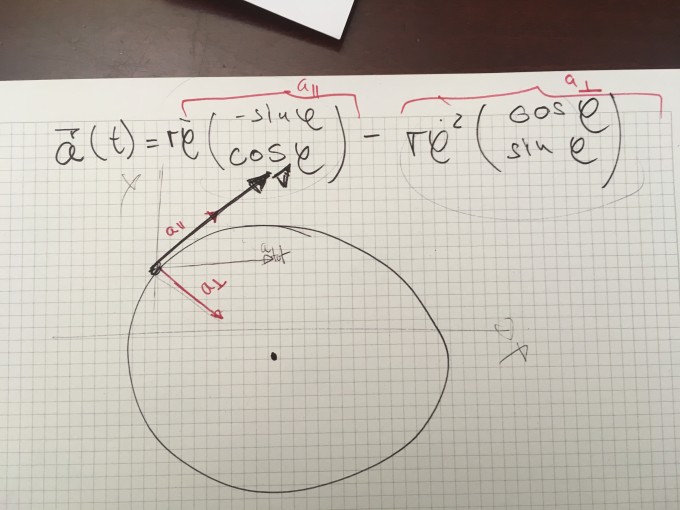 a∥ a⊥
a⃗(t) = rφ̈ (-sin φ cos φ) - rφ̇² (cos φ sin φ)
y
v⃗
a∥
a tot
a⊥
x